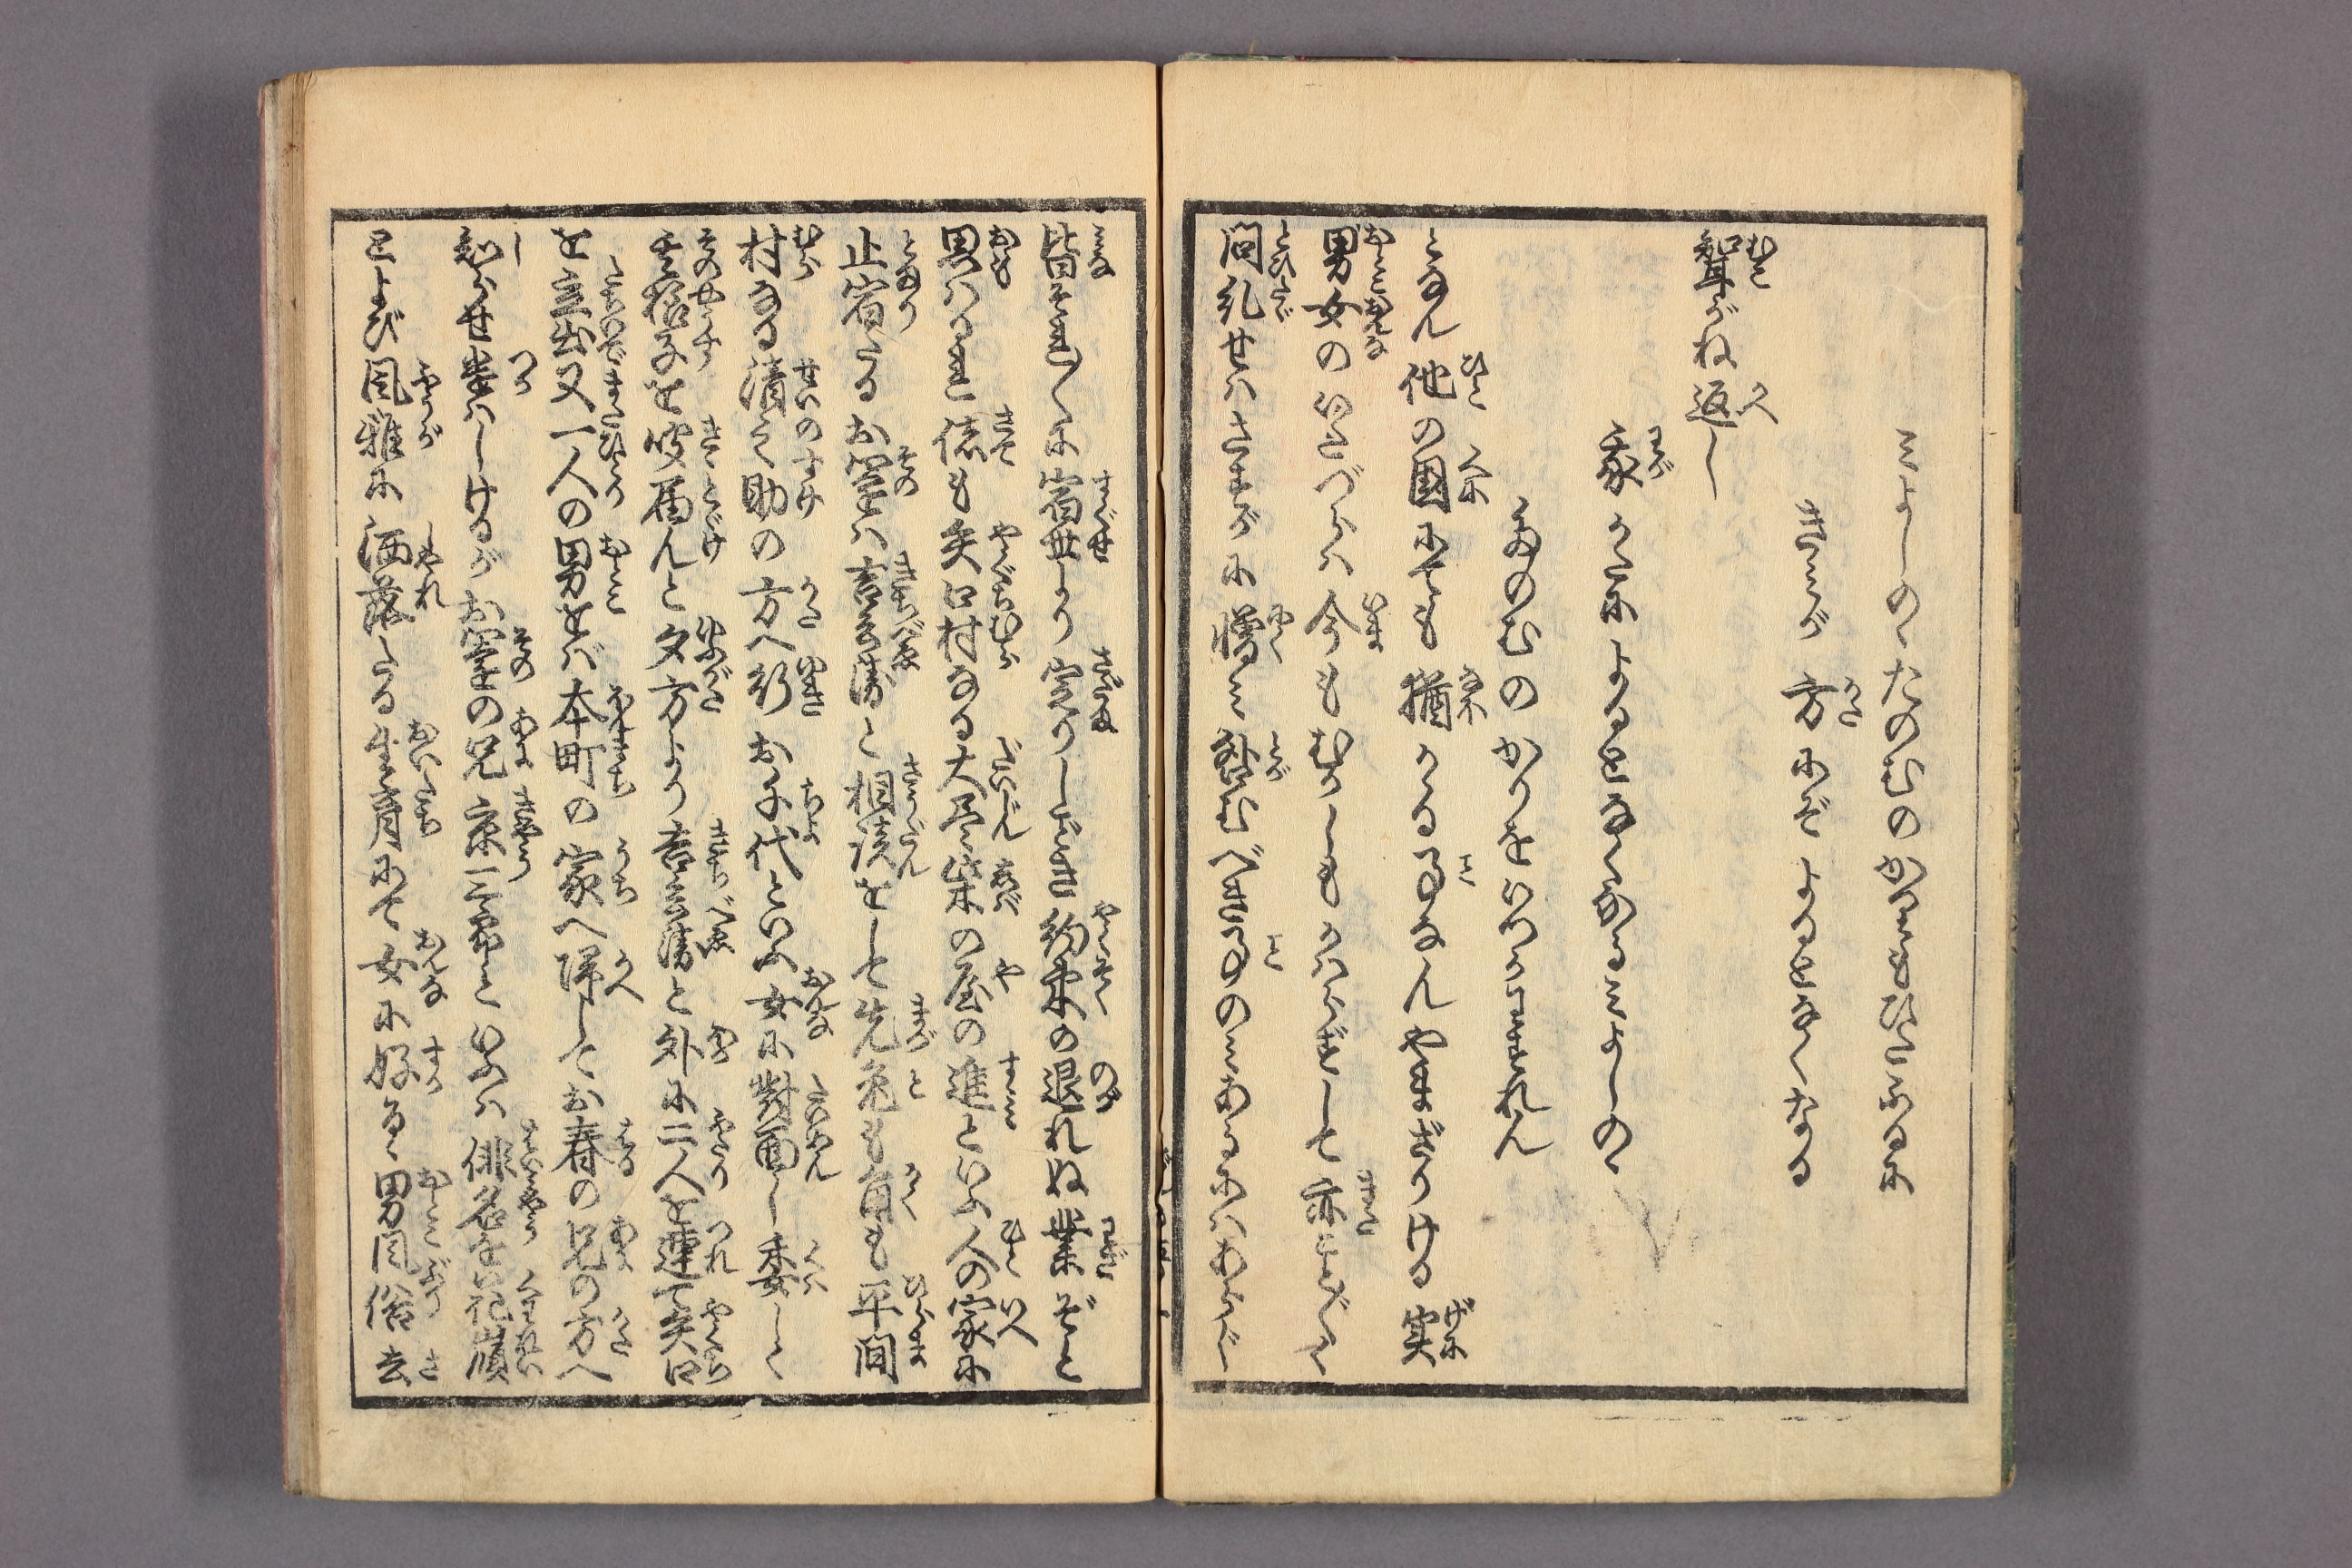 みよしのゝたのむのかりもひたふるに
きみが方にぞよるとなくなる
聟がね返し
我かたによるとなくなるみよしのゝ
たのむのかりをいつかわすれん
となん他の国にても猶かゝる事なんやまざりける実
男女のいたづらは今もむかしもかはらずして亦ことごとく
問礼せはさすがに憎み咎むべき事のみあるにはあらじ
皆それ〳〵に宿世より定りしごとき約束の退れぬ業ぞと
思はる
偖も矢口村なる大尽柴の屋の進といふ人の家に
止宿たるお園は吉兵衛と相談をして先兎も角も平間
村なる清之助の方へ行お千代といふ女に対面し委しく
其様子を聞届んと夕方より吉兵衛と外に二人を連て矢口
を立出又一人の男をば本町の家へ帰してお春の兄の方へ
知らせ遣はしけるがお園の兄京三郎といふは俳名を花嶺
とよび風雅に洒落たる生育にて女に好るゝ男風俗去